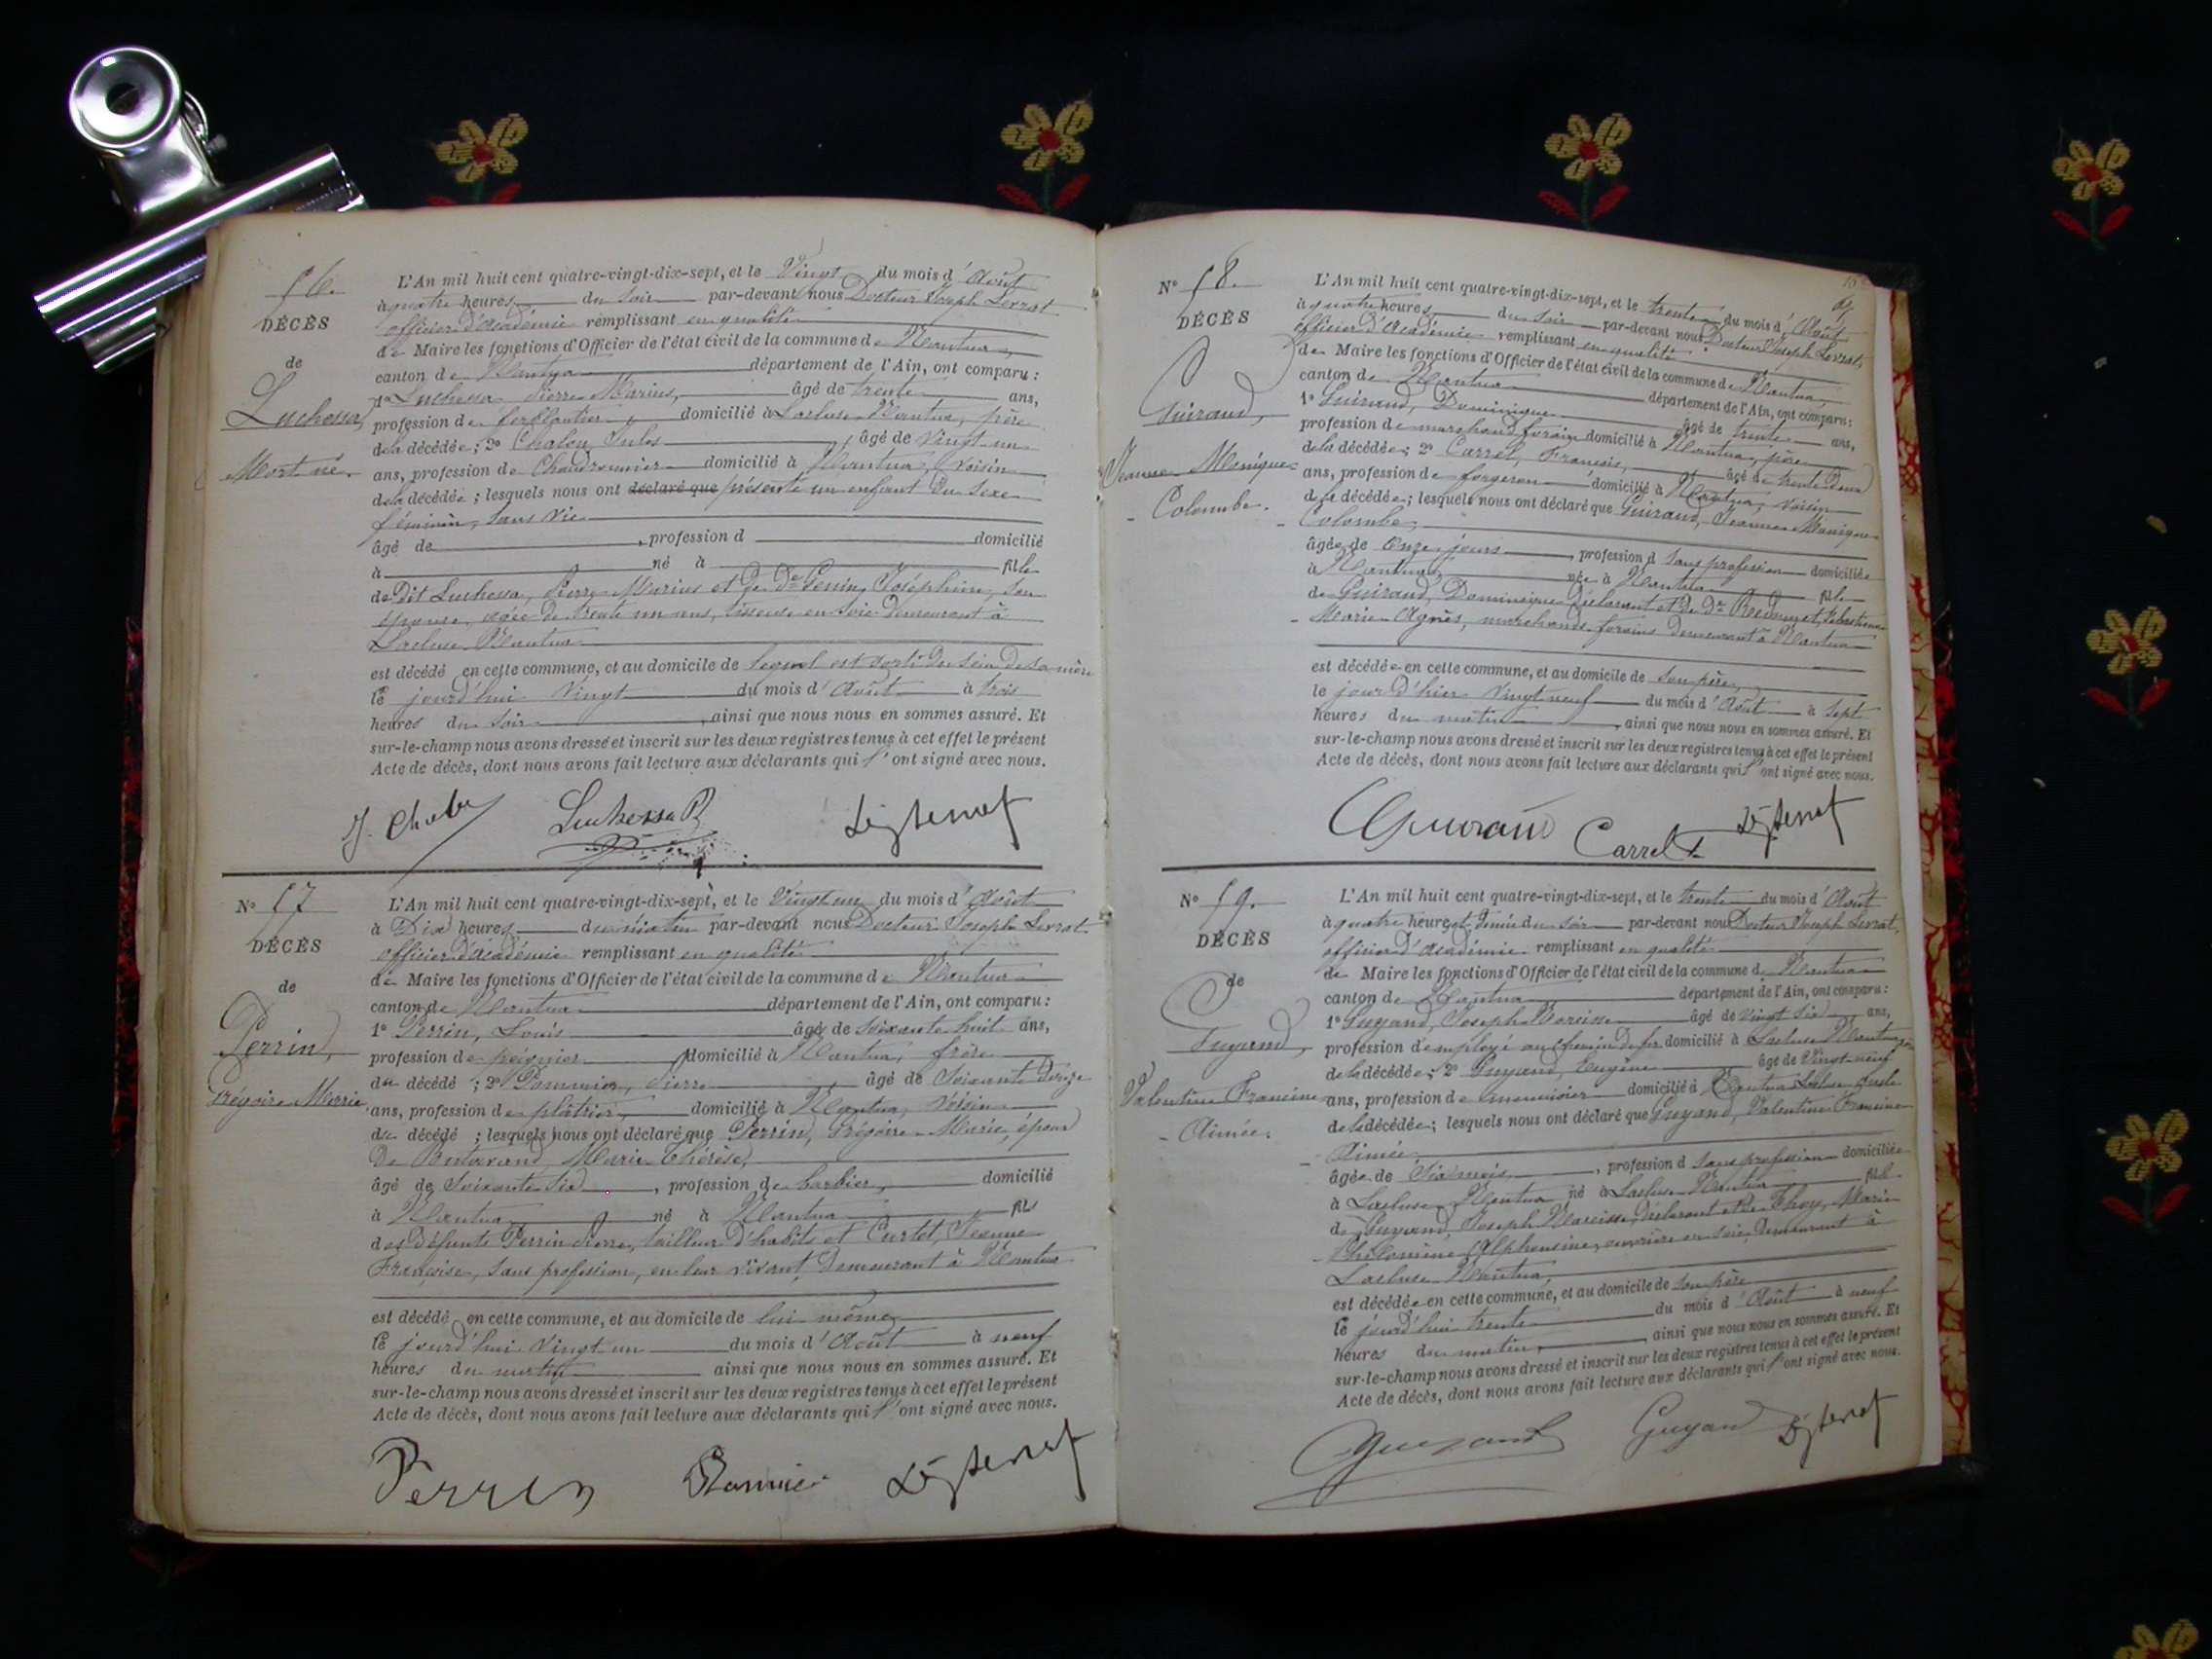 56.
DÉCÈS
de
Luchessa,
Mort né.
L'An mil huit cent quatre-vingt-dix-sept, et le Vingt du mois d'Août
à quatre heures du soir par-devant nous Docteur Joseph Levrat
officier d'académie remplissant en qualité
de Maire les fonctions d'Officier de l'état civil de la commune de Nantua,
canton de Nantua département de l'Ain, ont comparu :
1° Luchessa Pierre Marius, âgé de trente ans,
profession de ferblantier domicilié à Lacluse Nantua, père
de la décédée ; 2° Jules, âgé de vingt un
ans, profession de Chaudronnier domicilié à Nantua, voisin
de la décédée ; lesquels nous ont déclaré que présenté un enfant du sexe
féminin, sans vie
âgé de , profession d domicilié
à né à fille
de Dit Luchessa, Pierre Marius et de De Joséphine, son
épouse, âgée de trente un ans, tisseuse en soie demeurant à
Lacluse Nantua
est décédé en cette commune, et au domicile de lequel est sorti du sein de sa mère
le jourd'hui vingt du mois d'Août à trois
heures du soir , ainsi que nous nous en sommes assuré. Et
sur-le-champ nous avons dressé et inscrit sur les deux registres tenus à cet effet le présent
Acte de décès, dont nous avons fait lecture aux déclarants qui l'ont signé avec nous.
Luchessa P
N° 57
DÉCÈS
de
Perrin,
Grégoire Marie
L'An mil huit cent quatre-vingt-dix-sept, et le Vingt un du mois d'Août
à Dix heures du matin par-devant nous Docteur Joseph Levrat
officier d'académie remplissant en qualité
de Maire les fonctions d'Officier de l'état civil de la commune de Nantua
canton de Nantua département de l'Ain, ont comparu :
1° Perrin, Louis âgé de soixante huit ans,
profession de peignier domicilié à Nantua, frère
du décédé ; 2° Pierre âgé de soixante treize
ans, profession de plâtrier, domicilié à Nantua, voisin
du décédé ; lesquels nous ont déclaré que Perrin, Grégoire Marie, époux
De Marie Thérèse,
âgé de soixante six , profession de barbier, domicilié
à Nantua né à Nantua fils
des défunts Perrin Pierre, tailleur d'habits et Curtet, Jeanne
Françoise, sans profession, en leur vivant demeurant à Nantua
est décédé en cette commune, et au domicile de lui même
le jourd'hui vingt un du mois d'Août à neuf
heures du matin ainsi que nous nous en sommes assuré. Et
sur-le-champ nous avons dressé et inscrit sur les deux registres tenus à cet effet le présent
Acte de décès, dont nous avons fait lecture aux déclarants qui l'ont signé avec nous.
Perrin
N° 58.
DÉCÈS
Guiraud,
Jeanne Monique
Colombe.
L'An mil huit cent quatre-vingt-dix-sept, et le trente du mois d'Août
à quatre heures du soir par-devant nous Docteur Joseph Levrat,
officier d'Académie remplissant en qualité
de Maire les fonctions d'Officier de l'état civil de la commune de Nantua,
canton de Nantua département de l'Ain, ont comparu :
1° Guiraud, Dominique âgé de trente ans,
profession de marchand forain domicilié à Nantua, père
de la décédée ; 2° Carrel, François, âgé de trente deux
ans, profession de forgeron domicilié à Nantua, voisin
de la décédée ; lesquels nous ont déclaré que Guiraud, Jeanne Monique
Colombe,
âgée de onze jours , profession d sans profession domiciliée
à Nantua née à Nantua fille
de Guiraud, Dominique déclarant et de De
Marie Agnès, marchands forains demeurant à Nantua
est décédée en cette commune, et au domicile de son père,
le jour d'hier vingt neuf du mois d'Août à sept
heures du matin , ainsi que nous nous en sommes assuré. Et
sur-le-champ nous avons dressé et inscrit sur les deux registres tenus à cet effet le présent
Acte de décès, dont nous avons fait lecture aux déclarants qui l'ont signé avec nous.
Guiraud Carrel f.
N° 59.
DÉCÈS
de
Guyand,
Valentine Francine
Aimée.
L'An mil huit cent quatre-vingt-dix-sept, et le trente du mois d'Août
à quatre heures et demie du soir par-devant nous Docteur Joseph Levrat,
officier d'académie remplissant en qualité
de Maire les fonctions d'Officier de l'état civil de la commune de Nantua
canton de Nantua département de l'Ain, ont comparu :
1° Guyand, Joseph Narcisse âgé de vingt six ans,
profession d'employé au chemin de fer domicilié à Lacluse Nantua
de la décédée ; 2° Guyand, Eugène âgé de vingt-neuf
ans, profession de menuisier domicilié à Nantua Lacluse oncle
de la décédée ; lesquels nous ont déclaré que Guyand, Valentine Francine
Aimée,
âgée de six mois, , profession d sans profession domiciliée
à Lacluse Nantua né à Lacluse Nantua fille
de Guyand, Joseph Narcisse, déclarant et de Marie
Philomène Alphonsine, ouvrière en soie, demeurant à
Lacluse Nantua,
est décédée en cette commune, et au domicile de son père
le jourd'hui trente du mois d'Août à neuf
heures du matin, , ainsi que nous nous en sommes assuré. Et
sur-le-champ nous avons dressé et inscrit sur les deux registres tenus à cet effet le présent
Acte de décès, dont nous avons fait lecture aux déclarants qui l'ont signé avec nous.
Guyand Guyand